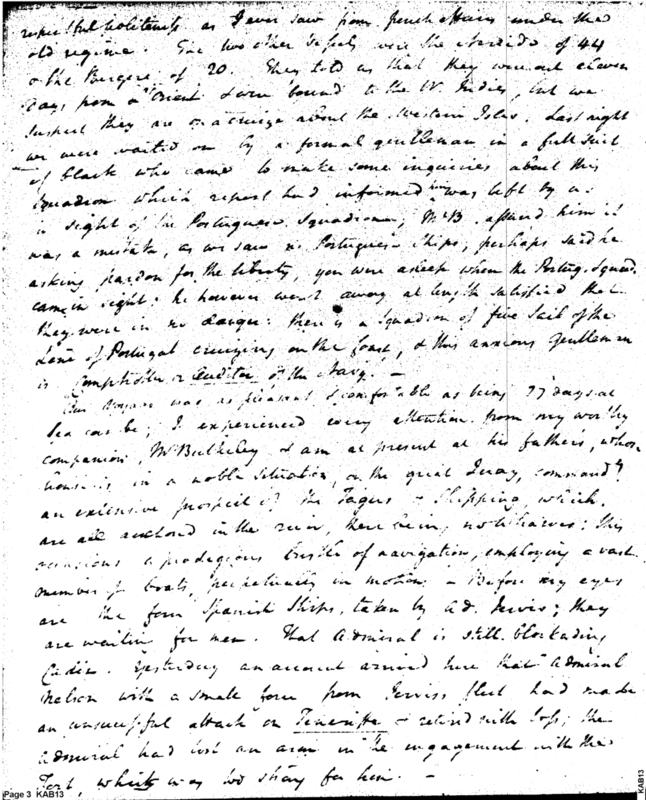 respectful politeness as I ever saw from french officers under the
old regime. The two other Vessels were the of 44
& the Bergere of 20. They told us that they were out eleven
days from L'Orient & were bound to the W. Indies, but we
suspect they are on a cruize about the Western Isles. Last night
we were waited on by a formal gentleman in a full suit
of black who came to make some inquiries about this
Squadron which report had informed him was left by us
in sight of the Portuguese Squadron; Mr B. assured him it
was a mistake, as we saw no Portuguese Ships; perhaps said he
asking pardon for the liberty, you were asleep when the Portug. Squad.
came in sight: he however went away at length satisfied that
they were in no danger: there is a Squadron of five Sail of the
Line of Portugal cruizing on the Coast, & this anxious gentleman
is Comptroller or Auditor of the Navy. —
Our voyage was as pleasant & comfortable as being 17 days at
Sea can be; I experienced every attention from my worthy
companion, Mr Bulkeley & am at present at his father's, whose
house is in a noble situation, on the great Quay, commandg
an extensive prospect of the Tagus & Shipping which
are all anchored in the river, there being no wharves: this
occasions a prodigious bustle of navigation, employing a vast
number of boats, perpetually in motion. — Before my eyes
are the four Spanish Ships, taken by Ad. Jervis; they
are waiting for men. That Admiral is still blockading
Cadiz. Yesterday an account arrived here that Admiral
Nelson with a small force from Jervis's fleet had made
an unsuccessful attack on Teneriffe & retired with loss; the
Admiral had lost an arm in the engagement with the
Fort, which was too strong for him. —
Page 3 KAB13
KAB13